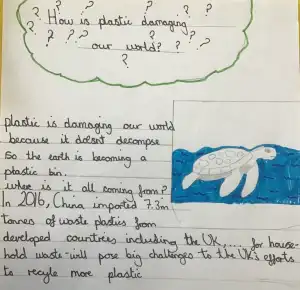 ? ? ? ? ? ?
? How is plastic damaging ?
? ? ? ? our world? ? ?
?
plastic is damaging our world
because it doesnt decompse
So the earth is becoming a
plastic bin.
where is it all coming from?
In 2016, China imported 7.3m
tonners of waste plastics from
developed countries including the UK,.... for house-
hold waste-will pose big challenges to the UK's efforts
to recyle more plastic